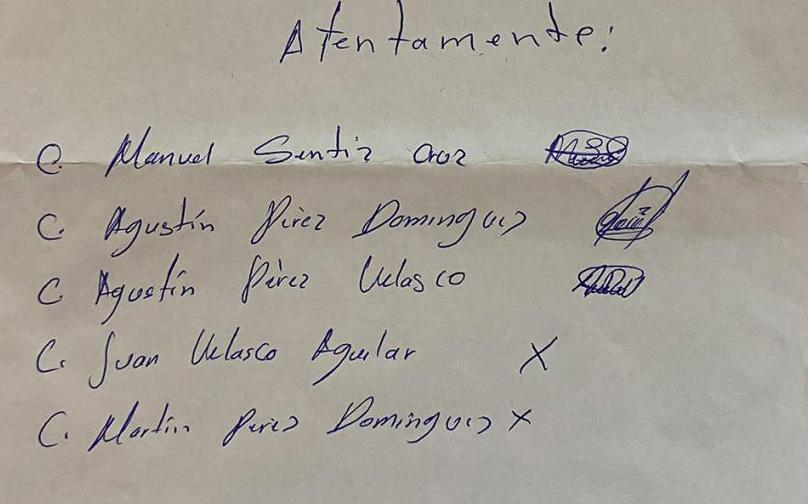 Atentamente:
C. Manuel Sentiz Cruz
C. Agustín Pérez Dominguez
C. Agustín Pérez Velasco
C. Juan Velasco Aguilar X
C. Martin Perez Dominguez X